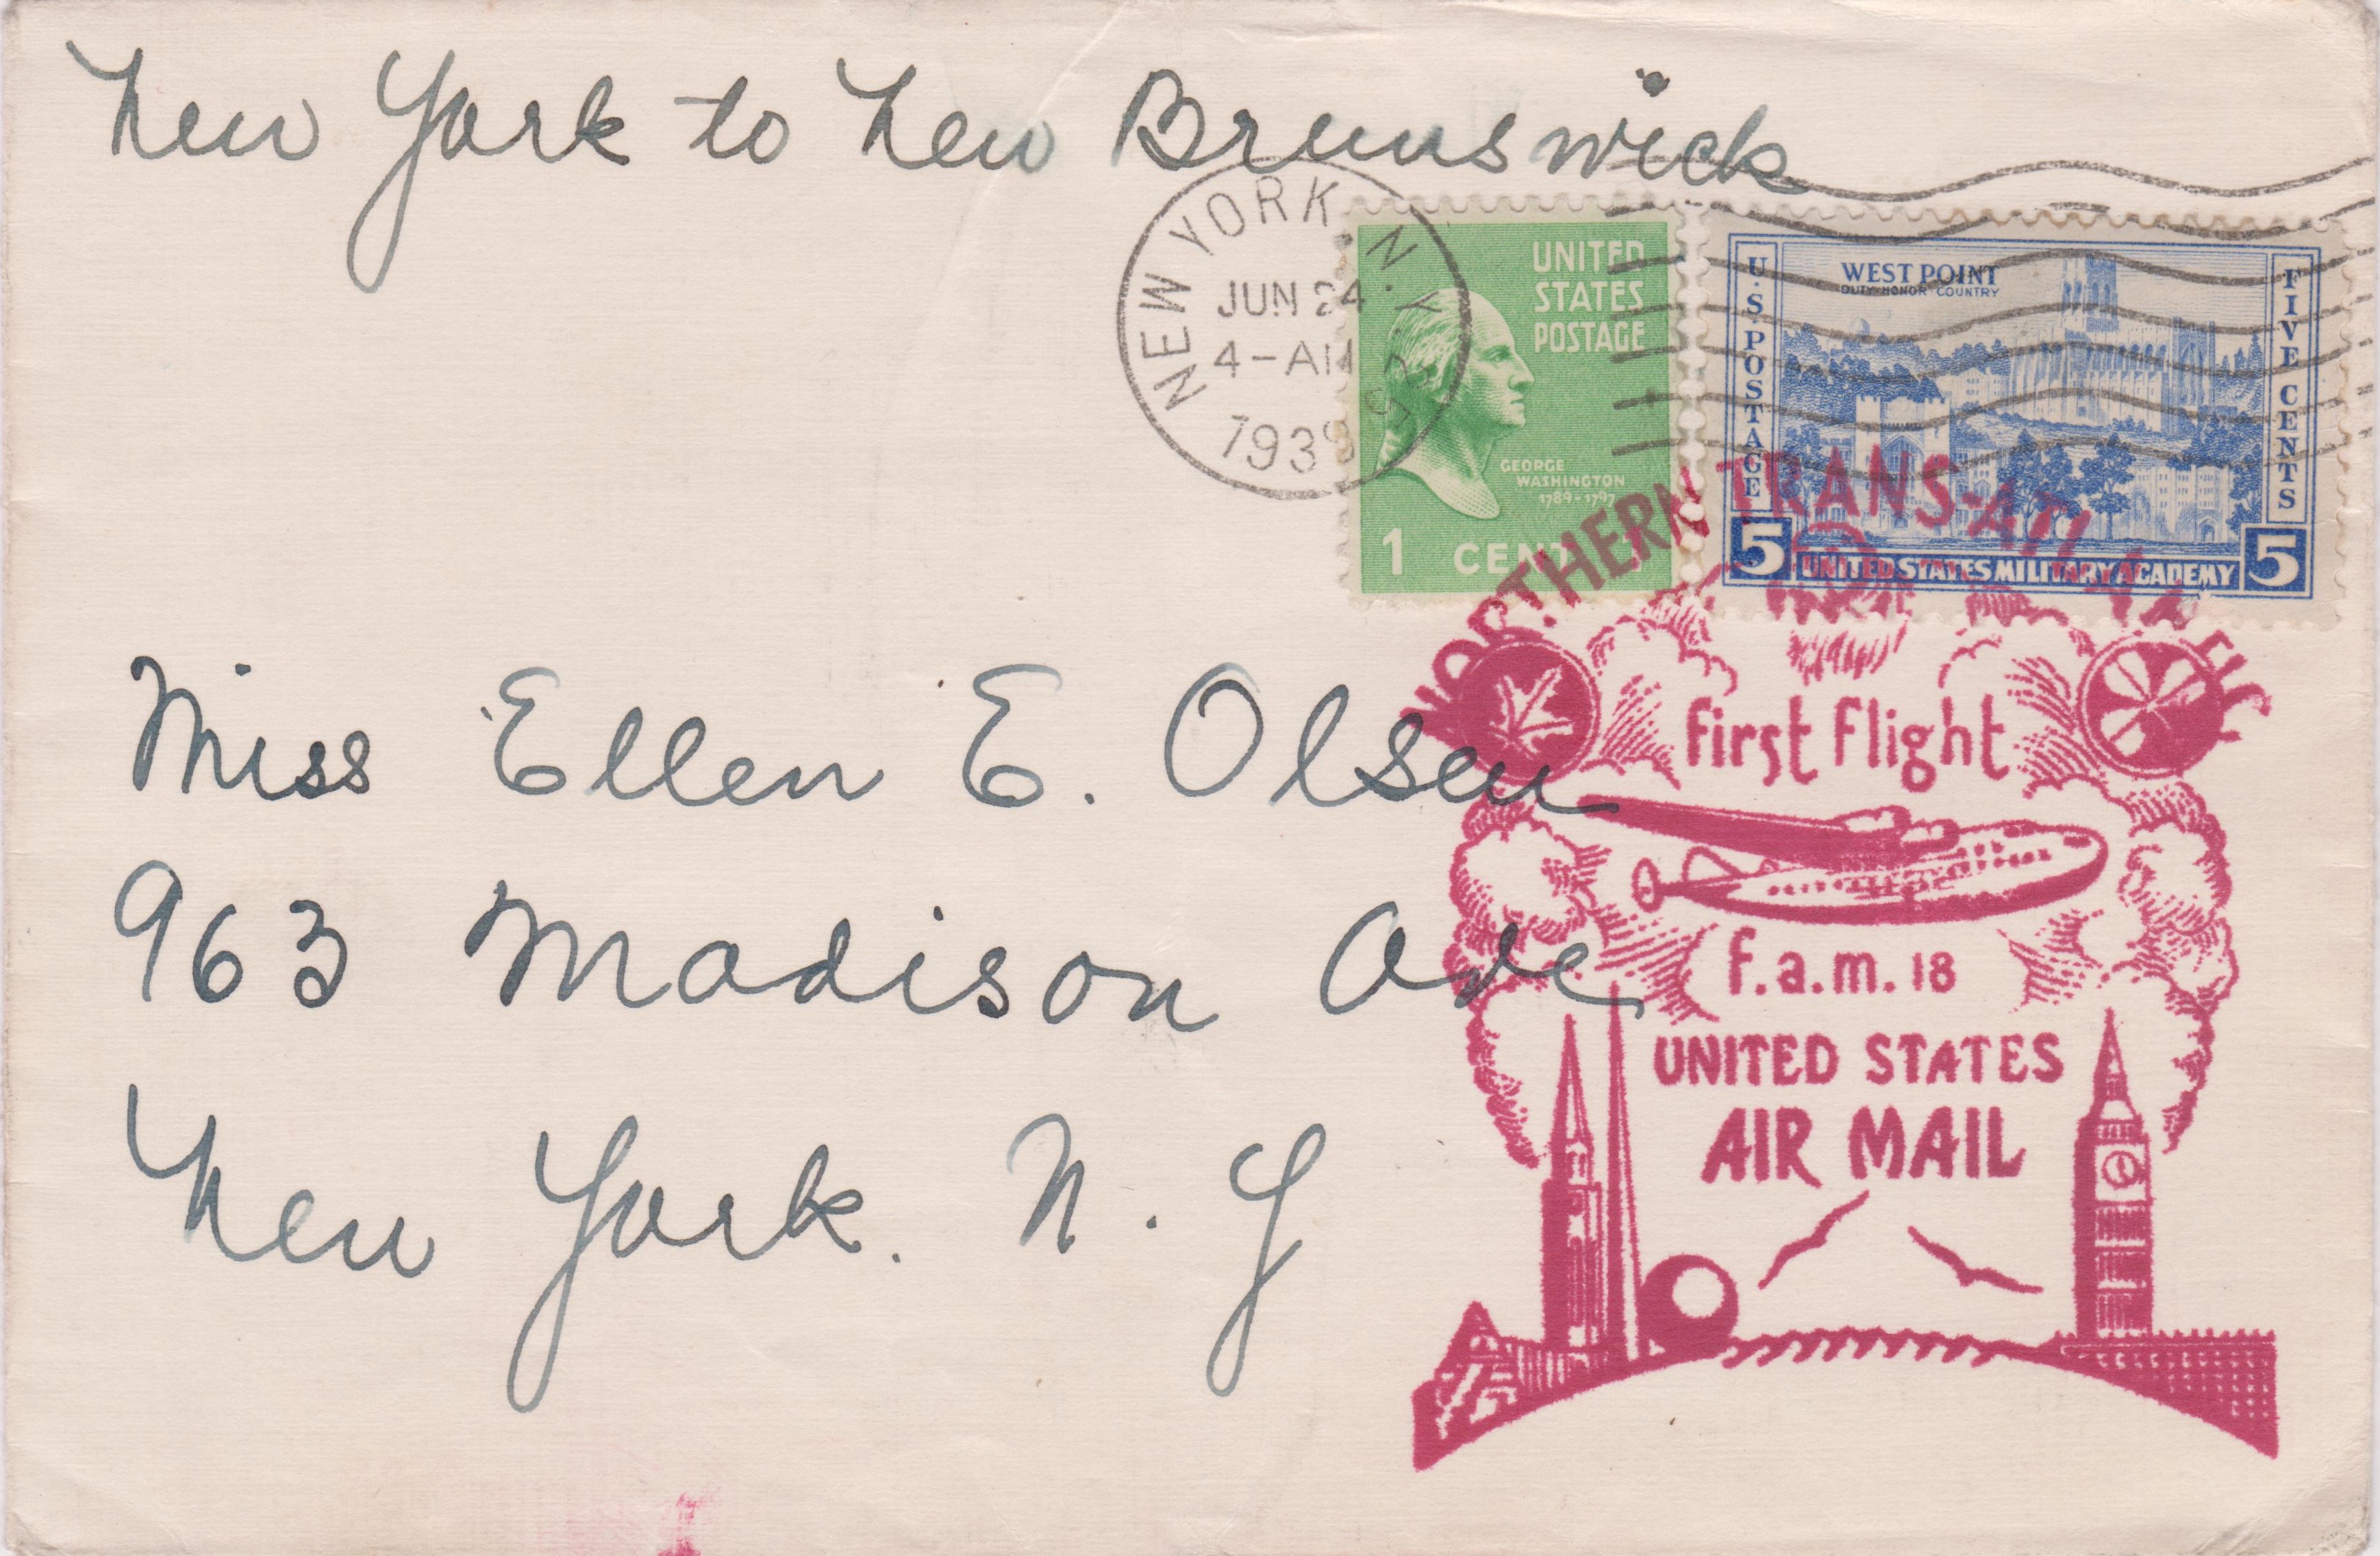 New York to New Brunswick
NEW YORK, N.Y.
JUN 24
4-AM
1939
UNITED
STATES
POSTAGE
GEORGE
WASHINGTON
1789-1797
1 CENT 1
U.S. POSTAGE
WEST POINT
DUTY HONOR COUNTRY
FIVE CENTS
5 UNITED STATES MILITARY ACADEMY 5
NORTHERN TRANS-ATLANTIC
first flight
f.a.m. 18
UNITED STATES
AIR MAIL
Miss Ellen E. Olsen
963 Madison Ave
New York. N. Y